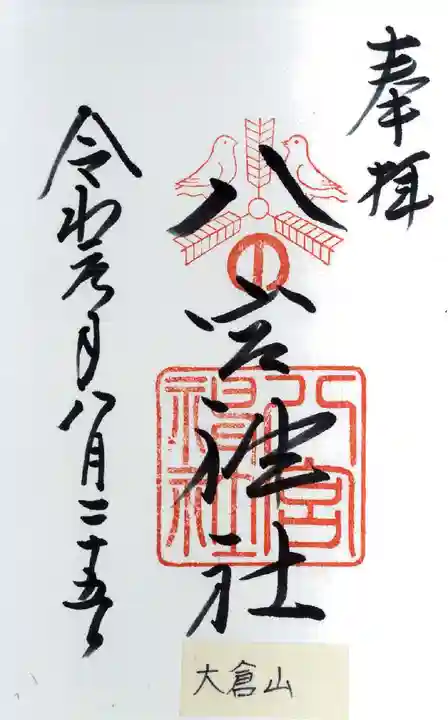 奉拝
八宮神社
令和元年八月二十五日
八宮
神社
大倉山